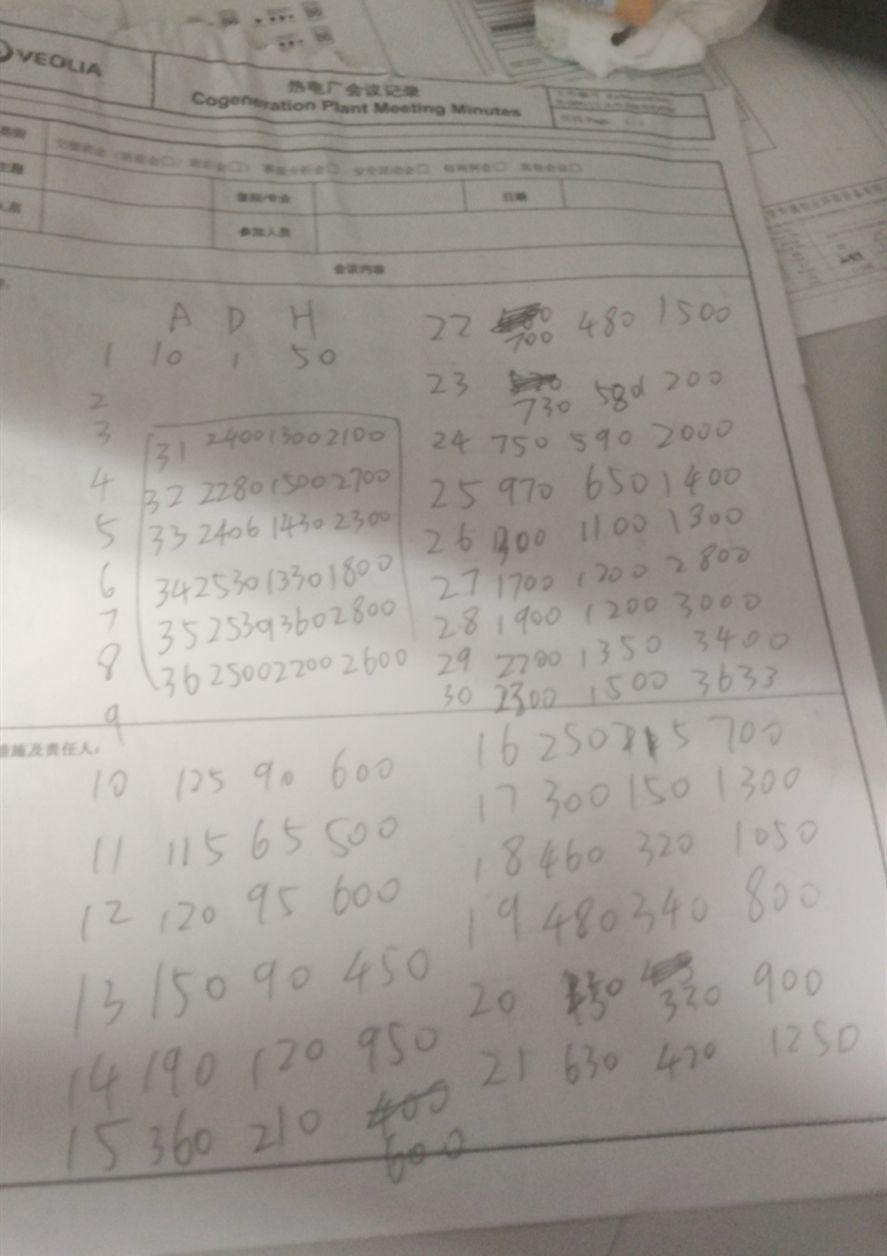 VEOLIA
热电厂会议记录
Cogeneration Plant Meeting Minutes
参加人员
日期
会议内容
A D H
1 10 1 50
2
3
4
5
6
7
8
9
31 2400 1300 2100
32 2280 1500 2700
33 2406 1430 2300
34 2530 1330 1800
35 2530 3602800
36 2500 2200 2600
22 700 480 1500
23 730 580 200
24 750 590 2000
25 970 650 1400
26 1100 1300
27 1700 1200 2800
28 1900 1200 3000
29 2200 1350 3400
30 2300 1500 3633
措施及责任人:
10 125 90 600
11 115 65 500
12 120 95 600
13 150 90 450
14 190 120 950
15 360 210 600
16 250 700
17 300 150 1300
18 460 320 1050
19 480 340 800
20 330 900
21 630 420 1250